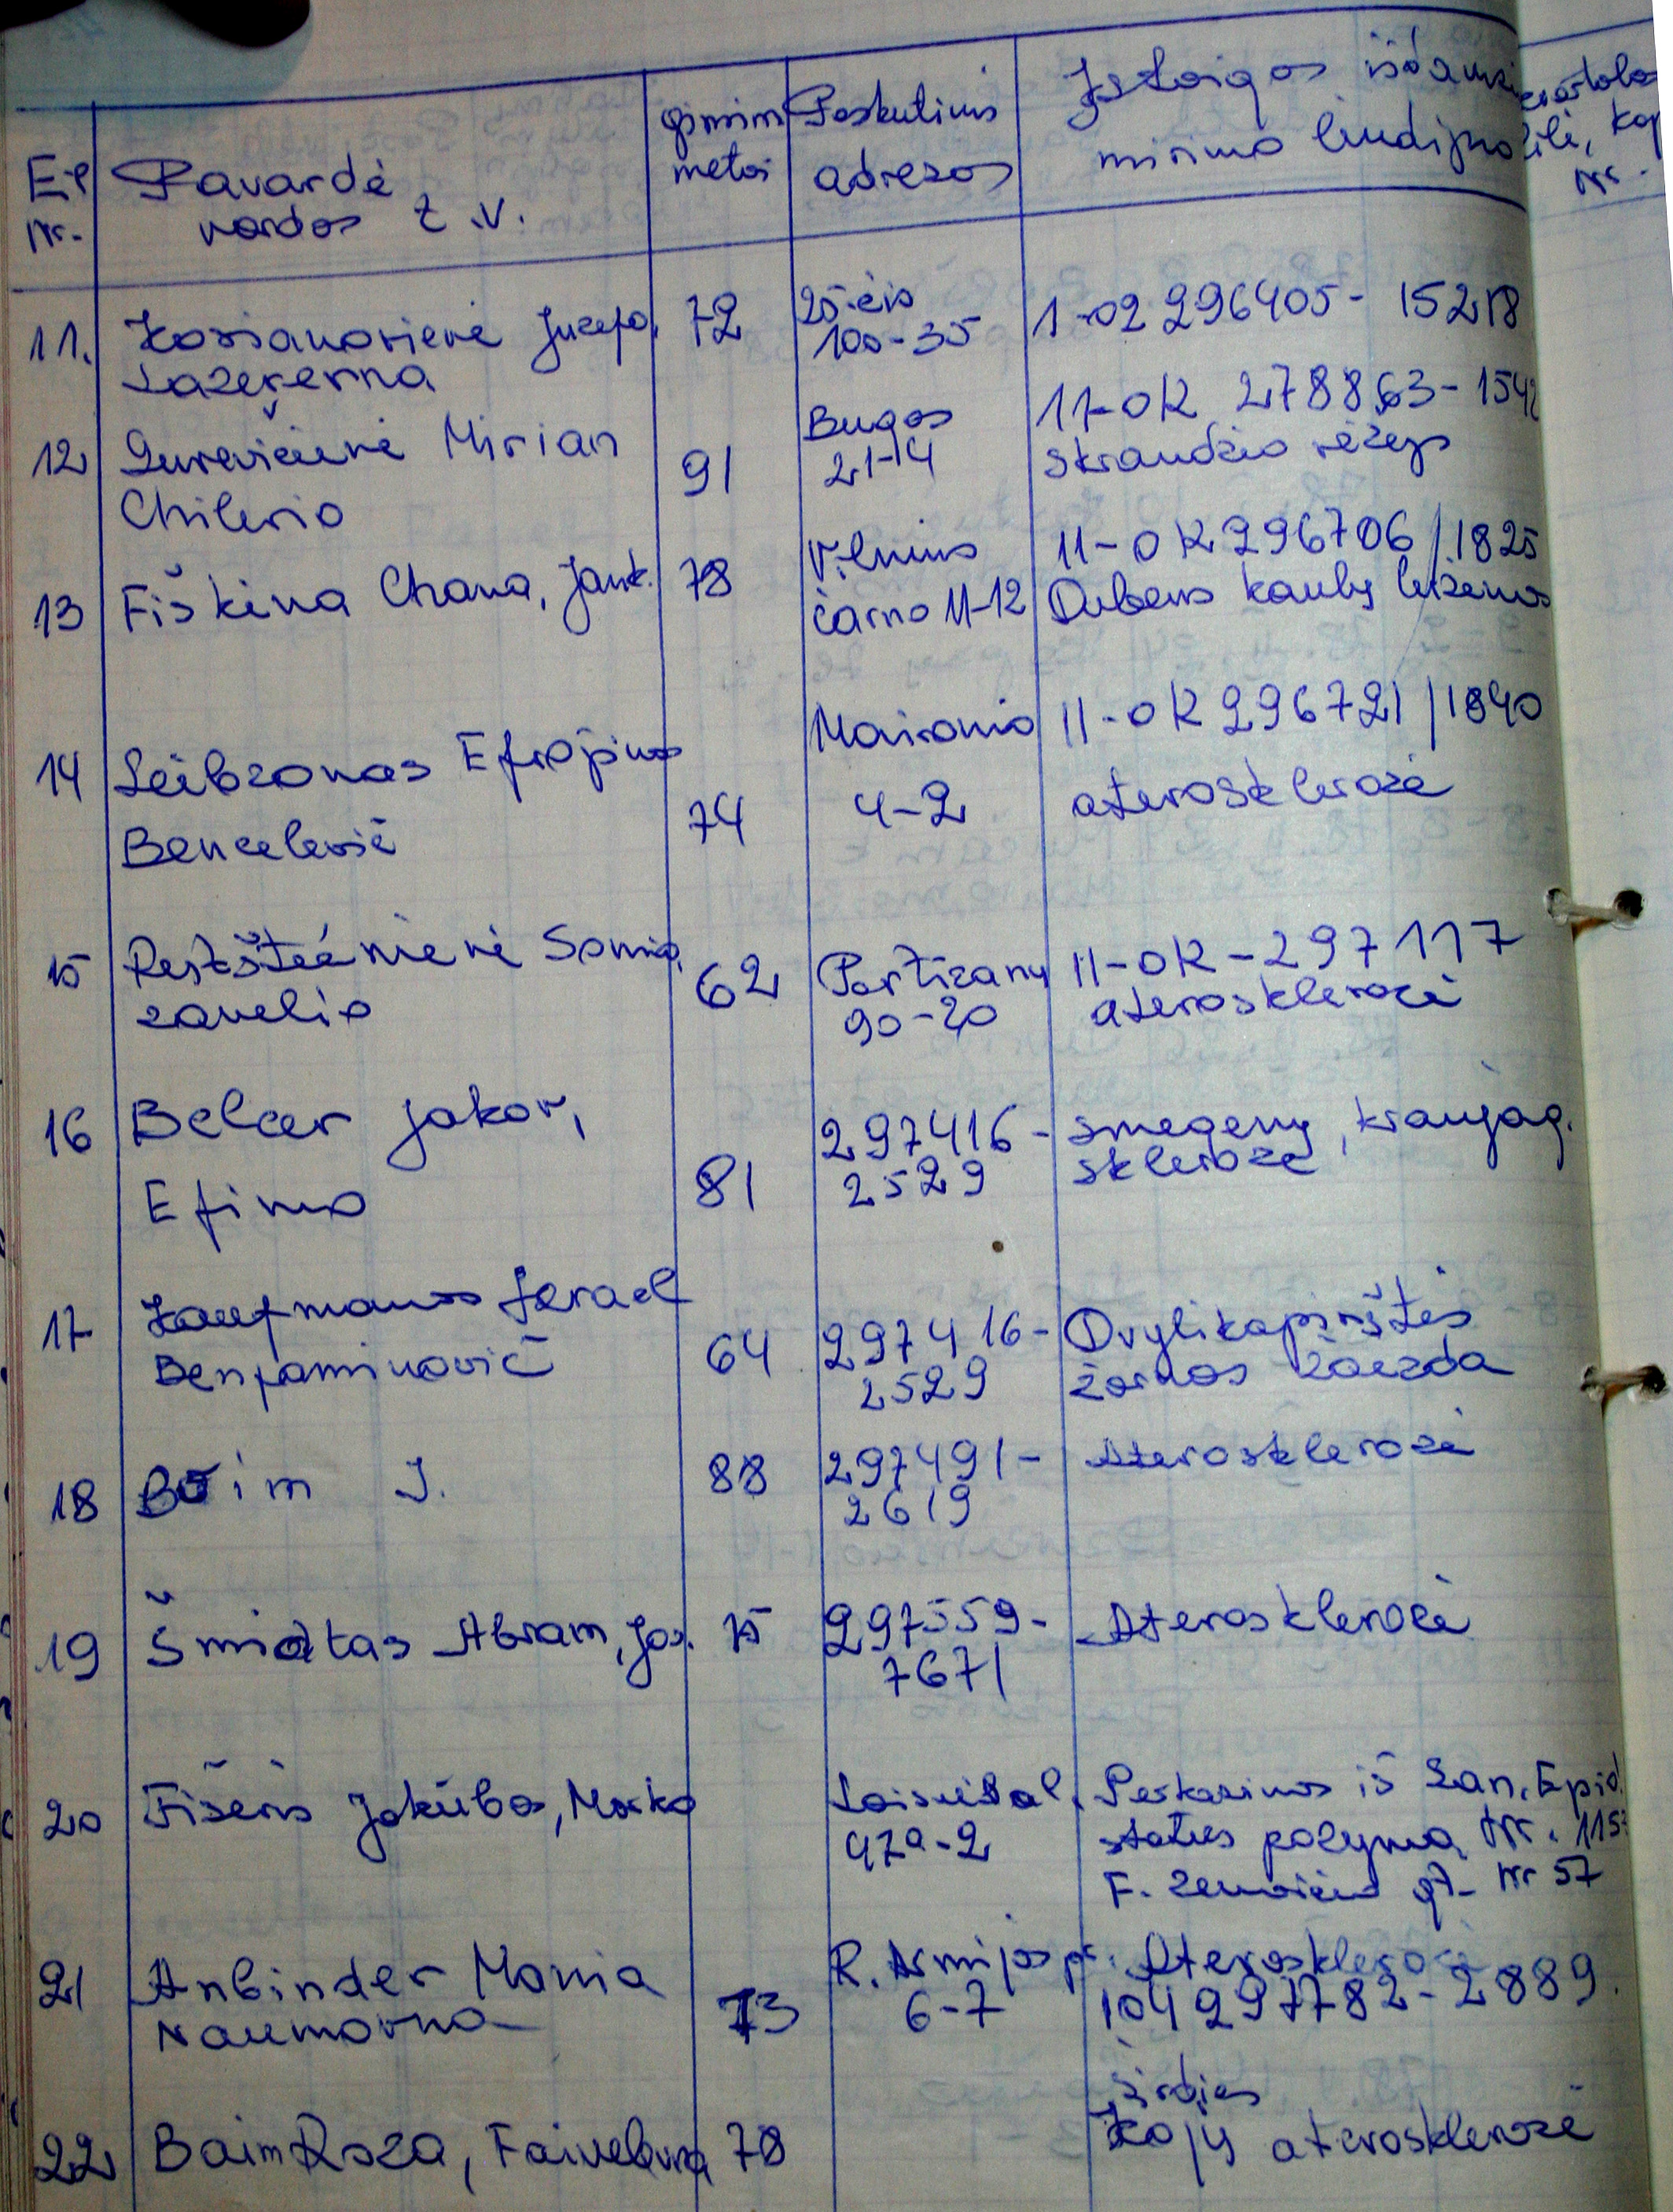 Eil Pavardė gimim Paskutinis Įstaigos išdavus
Nr. vardas t.v. metai adresas mirimo liudijimo
Nr.
11. Josepa, 72 25-čio 1-02 296405- 15218
100-35
12 Gurevičienė Mirian 91 Bugos 11-OK 278863- 154
Chilerio 21-14 skrandžio vėžys
13 Fiškina Chana, Jank. 78 Vilnius 11-OK 296706/1825
čarno 11-12 Dubens kaulų lūžimas
14 Leibzonas 74 Maironio 11-OK 296721/1840
Bencelevič 4-2 aterosklerozė
15 Sonia, 62 Partizanų 11-OK-297117
zavelio 90-20 aterosklerozė
16 Belcer Jakov, 81 297416- smegenų, kraujag.
Efimo 2529 sklerozė
17 Kaufmanas Izrael 64 297416- Dvylikapirštės
Benjaminovič 2529 žarnos žaizda
18 Boim J. 88 297491- Aterosklerozė
2619
19 Šmidtas Abram, Jos. 75 297559- Aterosklerozė
7671
20 Fišeris Jokūbas, Morko Laisvės al. Perkasimas iš San. Epid.
47a-2 Nr. 115
F. gt- Nr 57
21 Anbinder Mania 73 R. Armijos pr. Aterosklerozė
Naumovna 6-7 104 297782-2889.
širdies
22 Baim Roza, 78 Kojų aterosklerozė